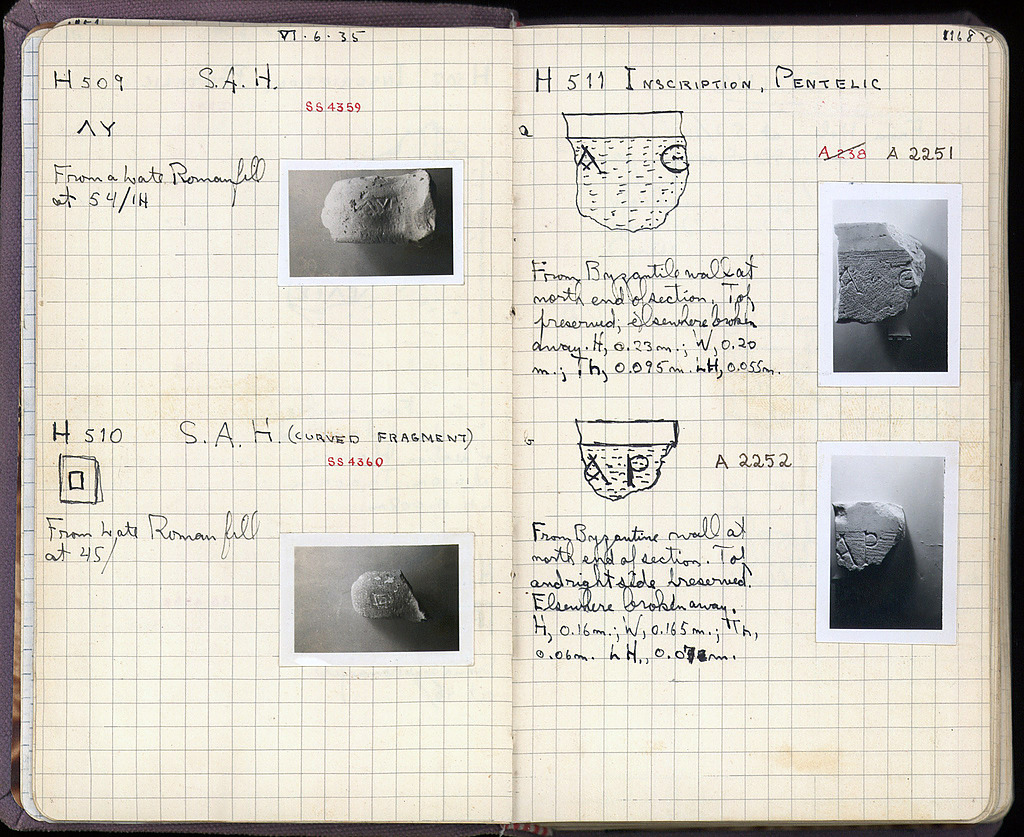 VI·6·35
H 509 S.A.H.
SS 4359
ΛΥ
From a Late Roman fill
at 54/ΙΗ
H 510 S.A.H. (CURVED FRAGMENT)
SS 4360
From Late Roman fill
at 45/
1168
H 511 INSCRIPTION, PENTELIC
a
A Є
A 238 A 2251
From Byzantile wall at
north end of section. Top
preserved; elsewhere broken
away. H, 0.23m.; W, 0.20
m.; Th, 0.095m. LH, 0.055m.
b
A P
A 2252
From Byzantine wall at
north end of section. Top
and right side preserved.
Elsewhere broken away.
H, 0.16m.; W, 0.165m.; Th,
0.06m. LH,